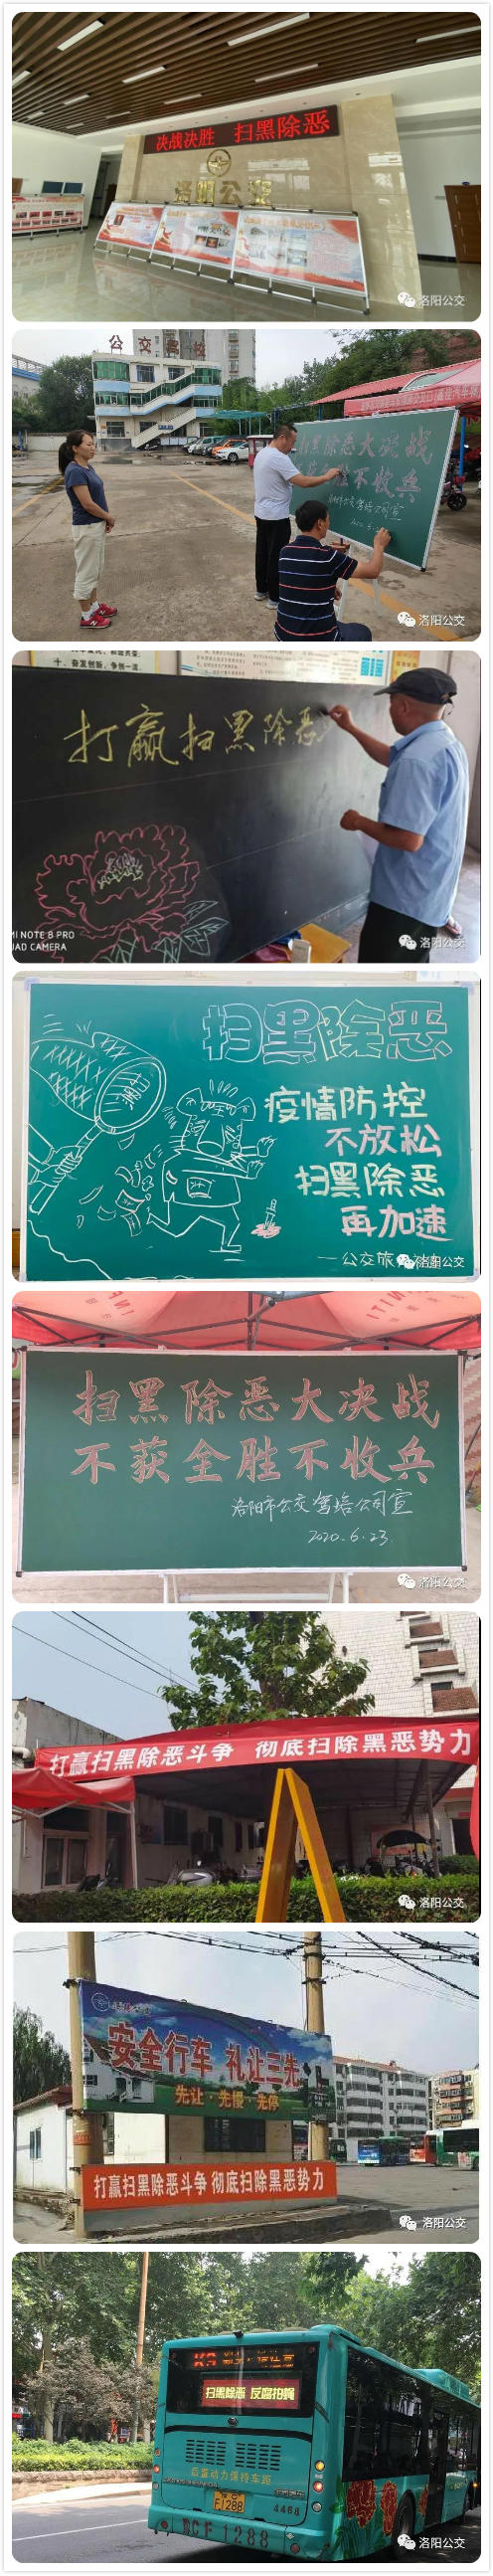 决战决胜 扫黑除恶
洛阳公交
洛阳公交
公交驾校
扫黑除恶大决战
不收兵
2020.6.
洛阳公交
十、奋发创新、争创一流
打赢扫黑除恶
MI NOTE 8 PRO
UAD CAMERA
洛阳公交
扫黑除恶
疫情防控
不放松
扫黑除恶
再加速
洛阳公交
扫黑除恶大决战
不获全胜不收兵
洛阳市公交驾培公司宣
2020.6.23
洛阳公交
打赢扫黑除恶斗争 彻底扫除黑恶势力
洛阳公交
安全行车 礼让三先
先让 先慢 先停
打赢扫黑除恶斗争 彻底扫除黑恶势力
洛阳公交
K9
扫黑除恶 反腐拍蝇
后置动力保持车距
F1288
4468
F 1288
洛阳公交